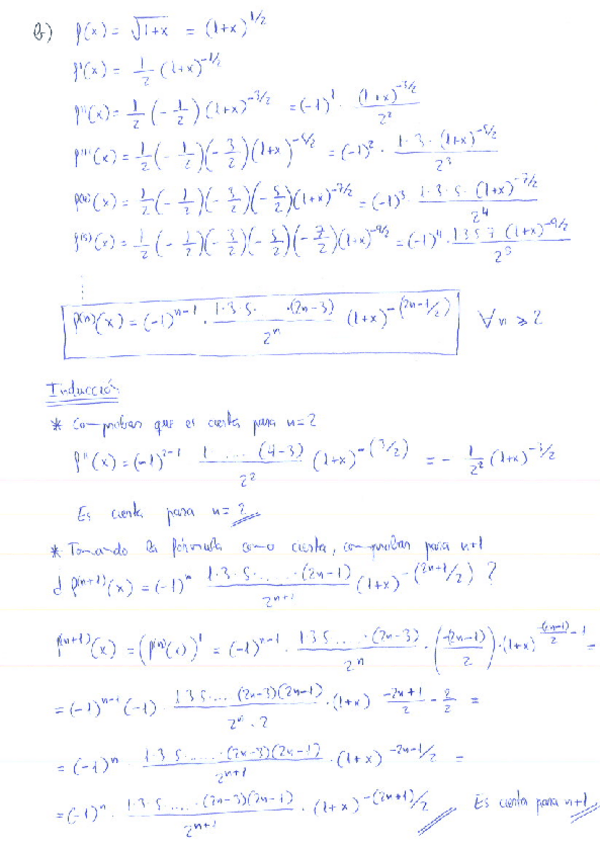 b) f(x) = √(1+x) = (1+x)^1/2
f'(x) = 1/2 (1+x)^-1/2
f''(x) = 1/2 (-1/2) (1+x)^-3/2 = (-1)^1 · (1+x)^-3/2 / 2^2
f'''(x) = 1/2 (-1/2)(-3/2)(1+x)^-5/2 = (-1)^2 · 1·3·(1+x)^-5/2 / 2^3
f^(4)(x) = 1/2 (-1/2)(-3/2)(-5/2)(1+x)^-7/2 = (-1)^3 · 1·3·5·(1+x)^-7/2 / 2^4
f^(5)(x) = 1/2 (-1/2)(-3/2)(-5/2)(-7/2)(1+x)^-9/2 = (-1)^4 · 1·3·5·7·(1+x)^-9/2 / 2^5
f^(n)(x) = (-1)^n-1 · 1·3·5· ··(2n-3) / 2^n (1+x)^-(2n-1/2) ∀n ≥ 2
Inducción
* Comprobar que es cierta para n=2
f''(x) = (-1)^2-1 1 .... (4-3) / 2^2 (1+x)^-(3/2) = - 1/2^2 (1+x)^-3/2
Es cierta para n=2
* Tomando la fórmula como cierta, comprobar para n+1
¿ f^(n+1)(x) = (-1)^n 1·3·5·....·(2n-1) / 2^n+1 (1+x)^-(2n+1/2) ?
f^(n+1)(x) = (f^(n)(x))' = (-1)^n-1 · 1·3·5....·(2n-3) / 2^n · (-(2n-1) / 2) · (1+x)^-(2n-1)/2 - 1 =
= (-1)^n-1 (-1) · 1·3·5.... (2n-3)(2n-1) / 2^n · 2 · (1+x)^-2n+1/2 - 2/2 =
= (-1)^n · 1·3·5.....·(2n-3)(2n-1) / 2^n+1 · (1+x)^-2n-1/2 =
= (-1)^n · 1·3·5.....·(2n-3)(2n-1) / 2^n+1 · (1+x)^-(2n+1)/2 Es cierta para n+1